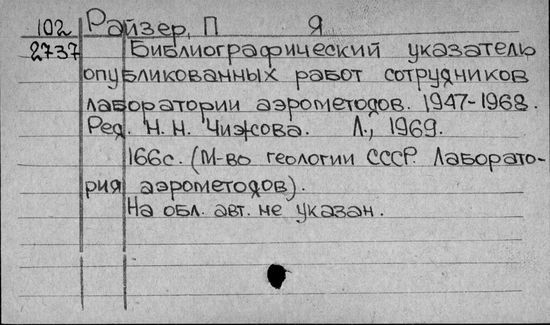 102 Райзер, П Я
2737 Библиографический указатель
опубликованных работ сотрудников
лаборатории аэрометодов. 1947-1968.
Ред. Н. Н. Чижова. Л., 1969.
166с. (М-во геологии СССР. Лаборато-
рия аэрометодов).
На обл. авт. не указан.